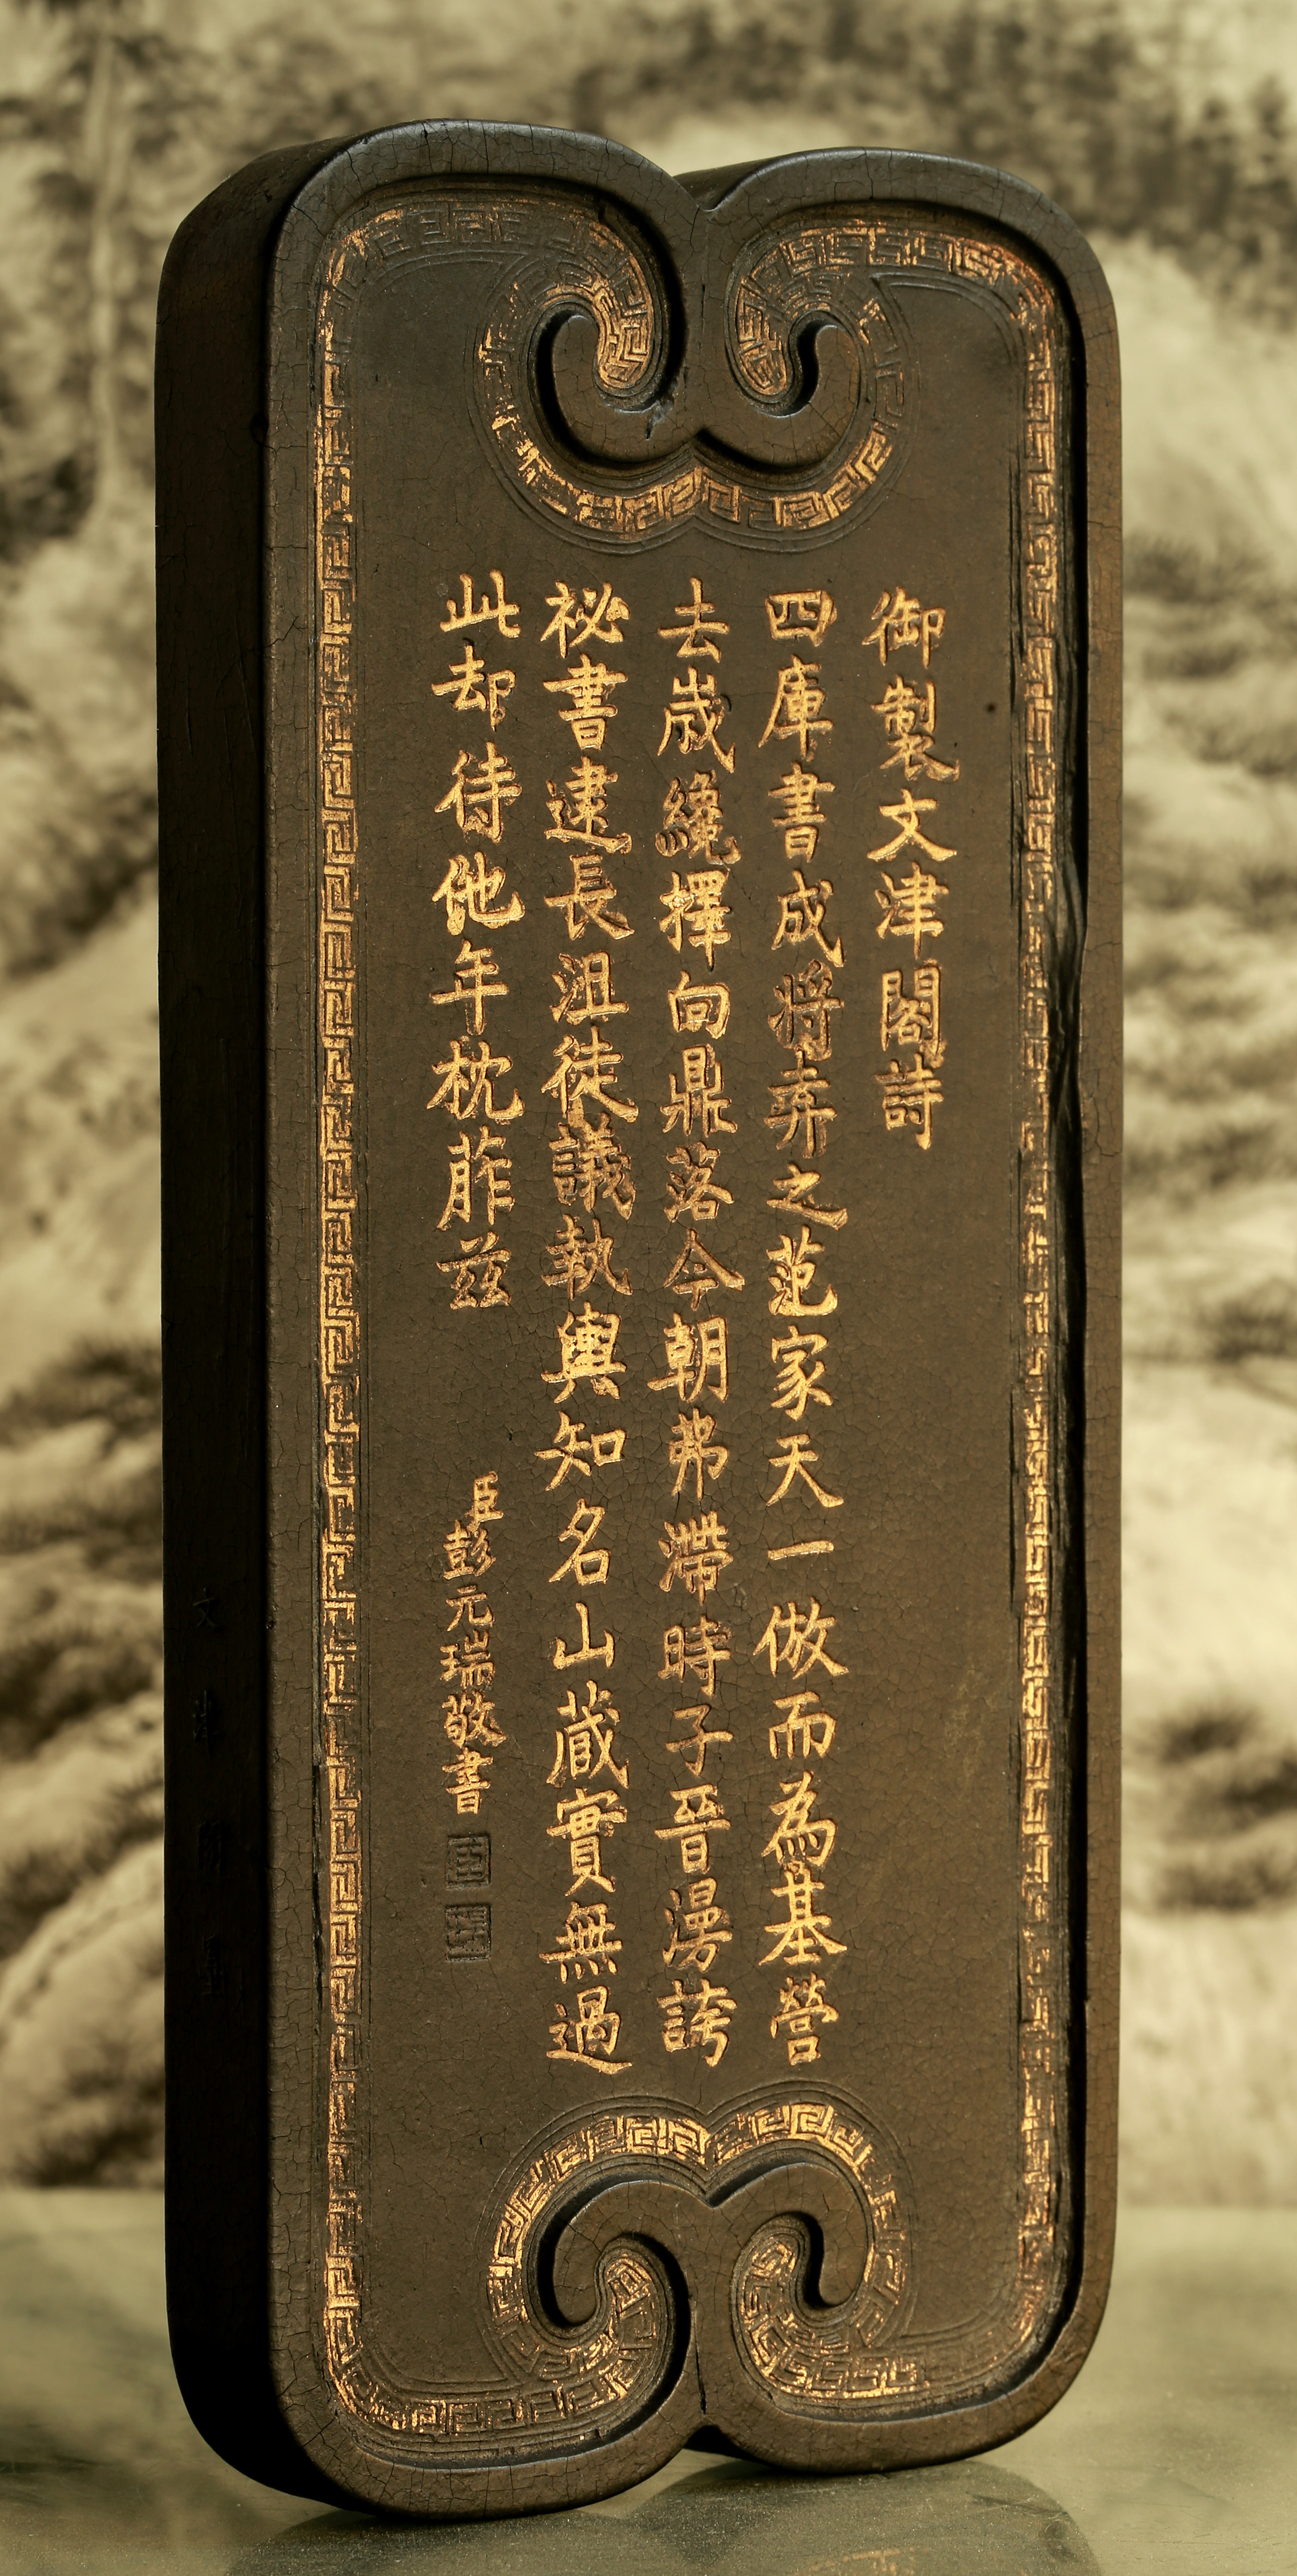 御製文津閣詩
四庫書成將弆之范家天一倣而為基營
去歲纔擇向鼎落今朝弗滯時子晉漫誇
祕書逮長沮徒議執輿知名山蔵實無過
此却待他年枕葄兹
臣彭元瑞敬書
文津閣